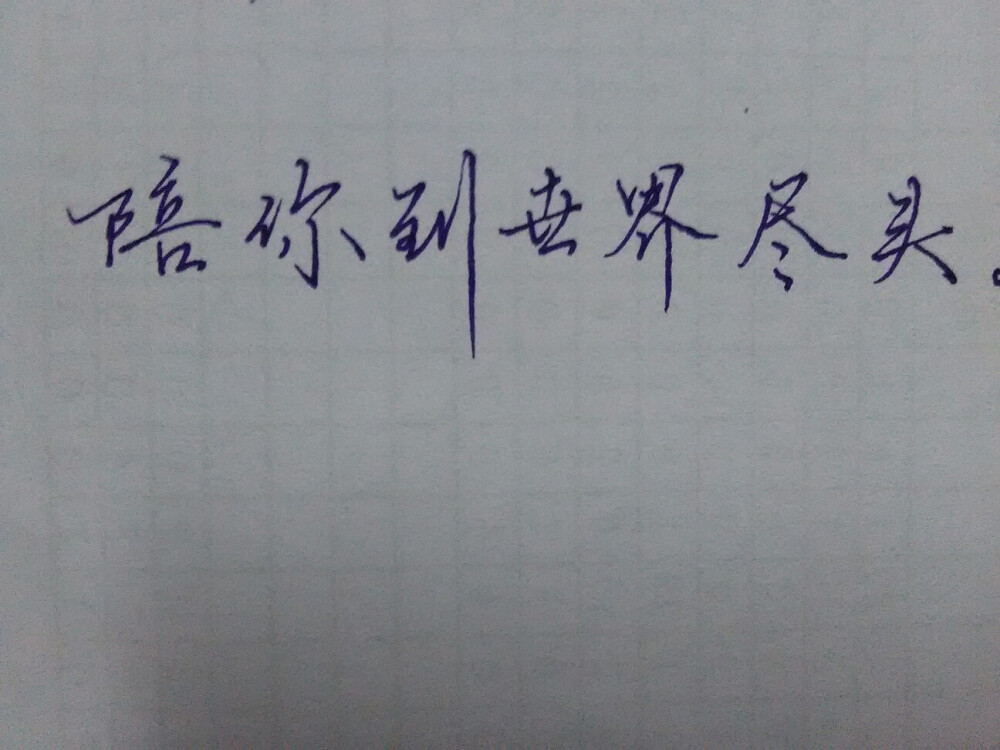 陪你到世界尽头。